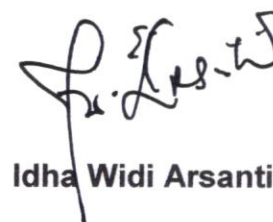 Idha Widi Arsanti